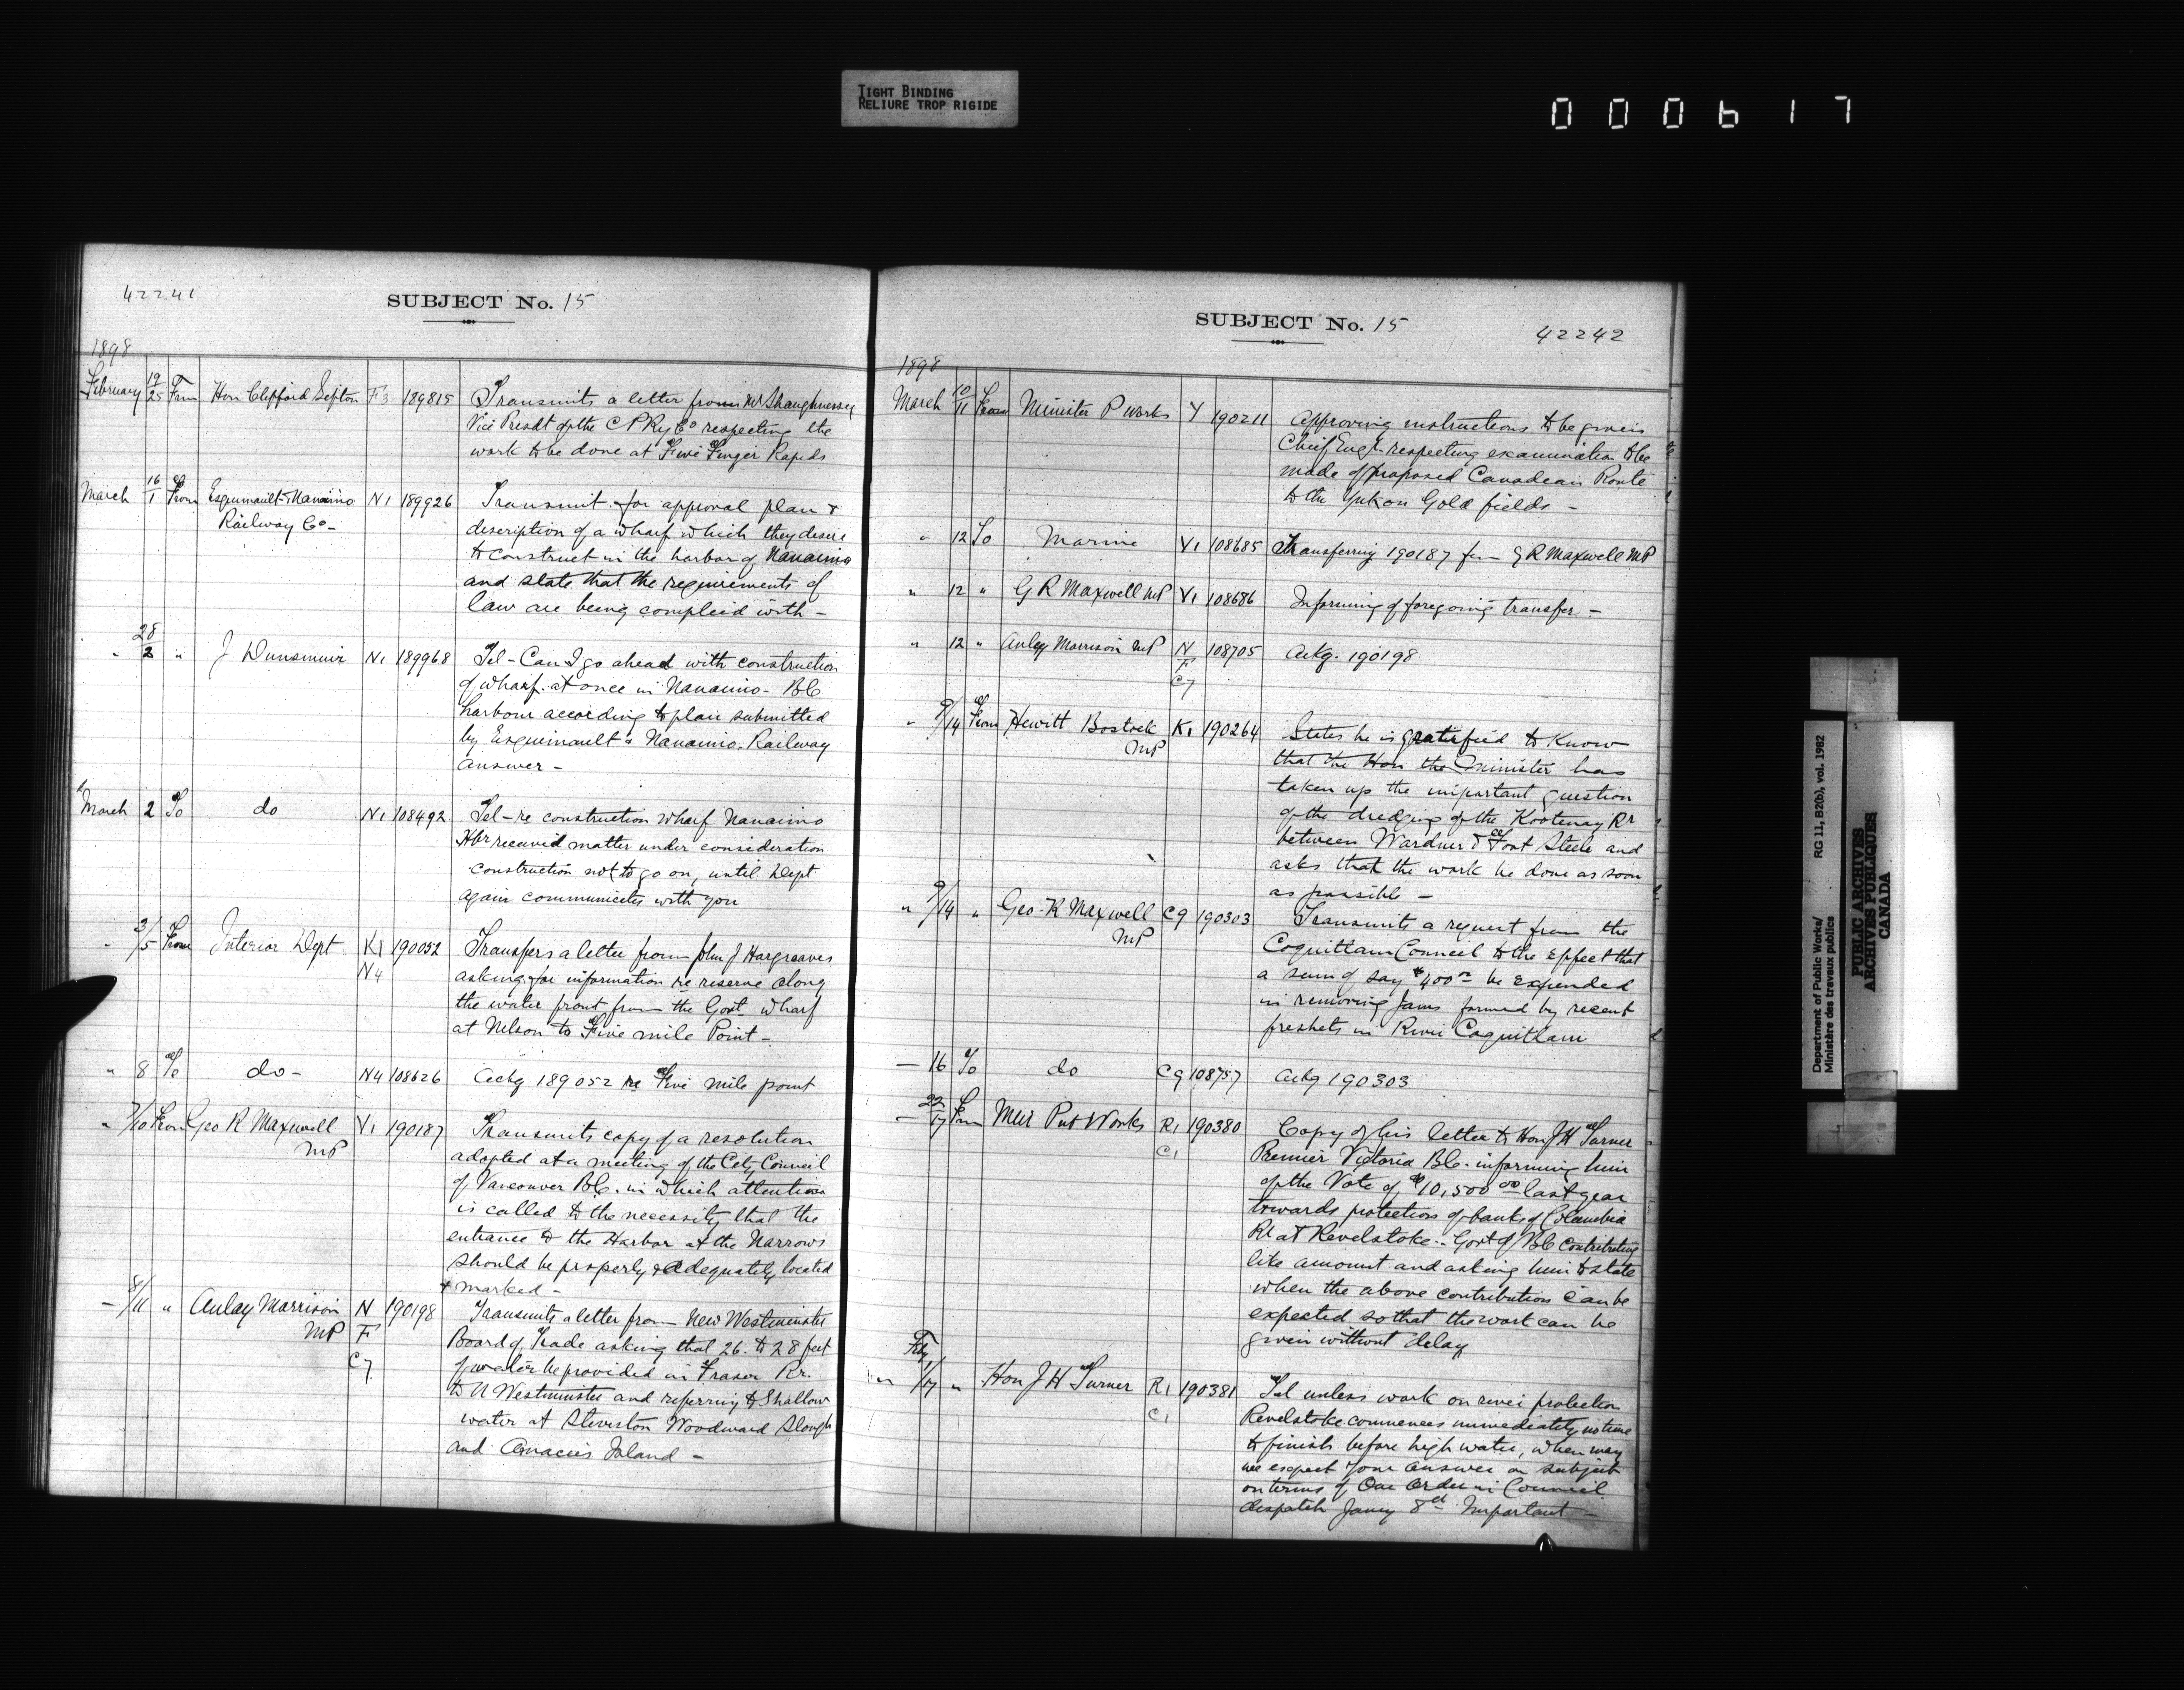 TIGHT BINDING
RELIURE TROP RIGIDE
000617
42241
SUBJECT No. 15
1898
February 19/25 From Hon Clifford Sifton F3 189815 Transmits a letter from Mr Shaughnessy
Vice Presdt of the C P Ry Co respecting the
work to be done at Five Finger Rapids
March 16/1 From Esquimault & Nanaimo N1 189926 Transmit for approval plan &
Railway Co - description of a wharf which they desire
to construct in the harbor of Nanaimo
and state that the requirements of
law are being complied with -
" 28/2 " J Dunsmuir N1 189968 Tel - Can I go ahead with construction
of wharf at once in Nanaimo - BC
harbour according to plan submitted
by Esquimault & Nanaimo Railway
answer -
March 2 To do N1 108492 Tel - re construction wharf Nanaimo
Hbr received matter under consideration
construction not to go on, until Dept
again communicates with you
" 3/5 From Interior Dept K1 190052 Transfers a letter from John J Hargreaves
N4 asking for information re reserve along
the water front from the Govt wharf
at Nelson to Five mile Point -
" 8 To do - N4 108626 Ackg 189052 re Five mile point
" 7/10 From Geo R Maxwell V1 190187 Transmits copy of a resolution
MP adopted at a meeting of the City Council
of Vancouver B.C. in which attention
is called to the necessity that the
entrance to the Harbor at the Narrows
should be properly & adequately located
& marked -
- 8/11 " Aulay Morrison N 190198 Transmits a letter from New Westminster
MP F Board of Trade asking that 26. to 28 feet
C7 of water be provided in Fraser Rr.
to N Westminster and referring to Shallow
water at Steveston Woodward Slough
and Annacies Island -
SUBJECT No. 15
42242
1898
March 10/11 From Minister P Works Y 190211 Approving instructions to be given
Chief Engr. respecting examination to be
made of proposed Canadian Route
to the Yukon Gold fields -
" 12 To Marine V1 108685 Transferring 190187 fm - G R Maxwell MP
" 12 " G R Maxwell MP V1 108686 Informing of foregoing transfer. -
" 12 " Aulay Morrison MP N 108705 Ackg. 190198
F
C7
" 9/14 From Hewitt Bostock K1 190264 States he is gratified to know
MP that the Hon the Minister has
taken up the important question
of the dredging of the Kootenay Rr
between Wardner & Fort Steele and
asks that the work be done as soon
as possible -
" 9/14 " Geo. R Maxwell C9 190303 Transmits a request from the
MP Coquitlam Council to the effect that
a sum of say $400 00 be expended
in removing Jams formed by recent
freshets in River Coquitlam
- 16 To do C9 108757 Ackg 190303
- 22/17 From Mur Pub Works R1 190380 Copy of his letter to Hon J H Turner
C1 Premier Victoria B.C. informing him
of the Vote of $10,500 00 last year
towards protection of bank of Columbia
Rr at Revelstoke - Govt of BC contributing
like amount and asking him to state
when the above contribution can be
expected so that the work can be
given without delay
Feby
" 1/17 " Hon J H Turner R1 190381 Tel unless work on river protection
C1 Revelstoke commences immediately no time
to finish before high water, when may
we expect your answer on subject
on terms of Our Order in Council
despatch Jany 8th Important -
Department of Public Works/ RG 11, B2(b), vol. 1982
Ministère des travaux publics
PUBLIC ARCHIVES
ARCHIVES PUBLIQUES
CANADA